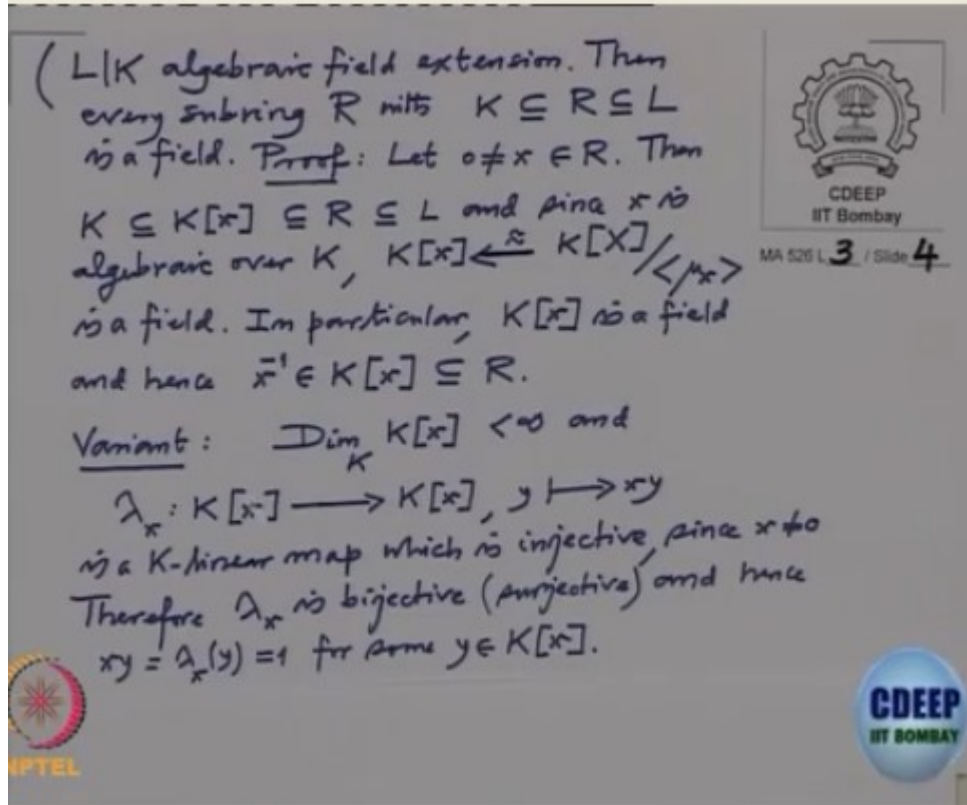 ( L|K algebraic field extension. Then
every subring R with K ⊆ R ⊆ L
is a field. Proof: Let 0 ≠ x ∈ R. Then
K ⊆ K[x] ⊆ R ⊆ L and since x is
algebraic over K, K[x] ⟵≈ K[X]/<μₓ>
is a field. In particular, K[x] is a field
and hence x⁻¹ ∈ K[x] ⊆ R.
Variant: Dim_K K[x] < ∞ and
λₓ : K[x] ⟶ K[x], y ⟼ xy
is a K-linear map which is injective, since x ≠ 0
Therefore λₓ is bijective (surjective) and hence
xy = λₓ(y) = 1 for some y ∈ K[x].
CDEEP
IIT Bombay
MA 526 L 3 / Slide 4
NPTEL
CDEEP
IIT BOMBAY